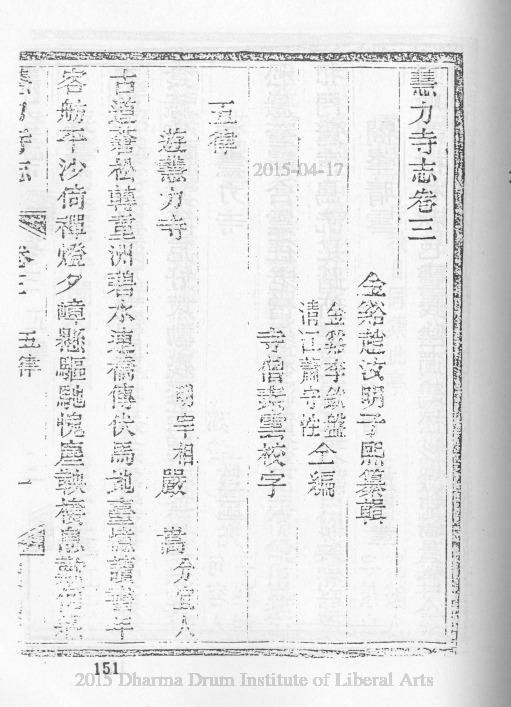 慧力寺志卷三
金谿趙汝明子熙纂輯
金谿李欽盤
清江蕭守性 仝編
寺僧素雲校字
五律
遊慧力寺
明宰相嚴 嵩 分宜人
古道蒼松轉童洲碧水連橋傳伏馬地臺憶讀書年
客舫平沙倚禪燈夕嶂懸驅馳愧塵鞅棲息
慧力寺志 卷三 五律 一
151
2015-04-17
2015 Dharma Drum Institute of Liberal Arts